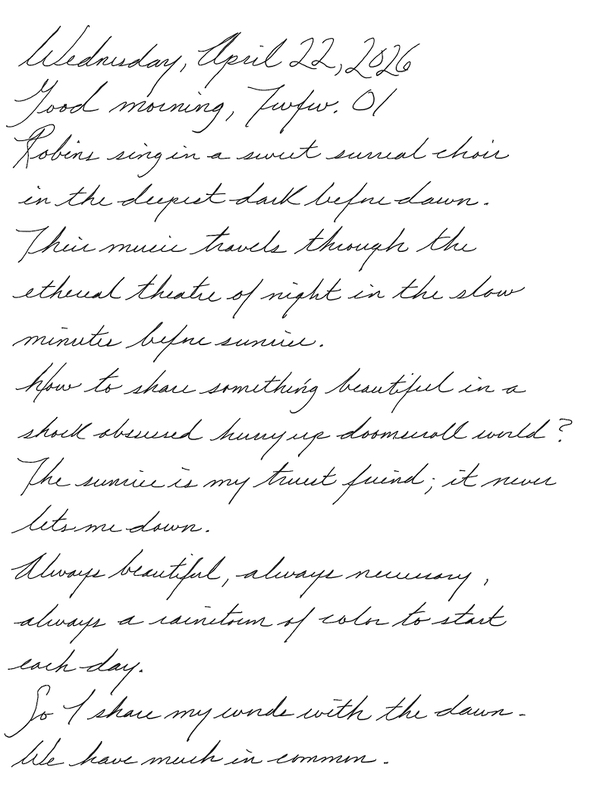 Wednesday, April 22, 2026
Good morning, Twfw. 01
Robins sing in a sweet surreal choir
in the deepest dark before dawn.
Their music travels through the
ethereal theatre of night in the slow
minutes before sunrise.
How to share something beautiful in a
shock obsessed hurry up doomscroll world?
The sunrise is my truest friend; it never
lets me down.
Always beautiful, always necessary,
always a rainstorm of color to start
each day.
So I share my words with the dawn.
We have much in common.